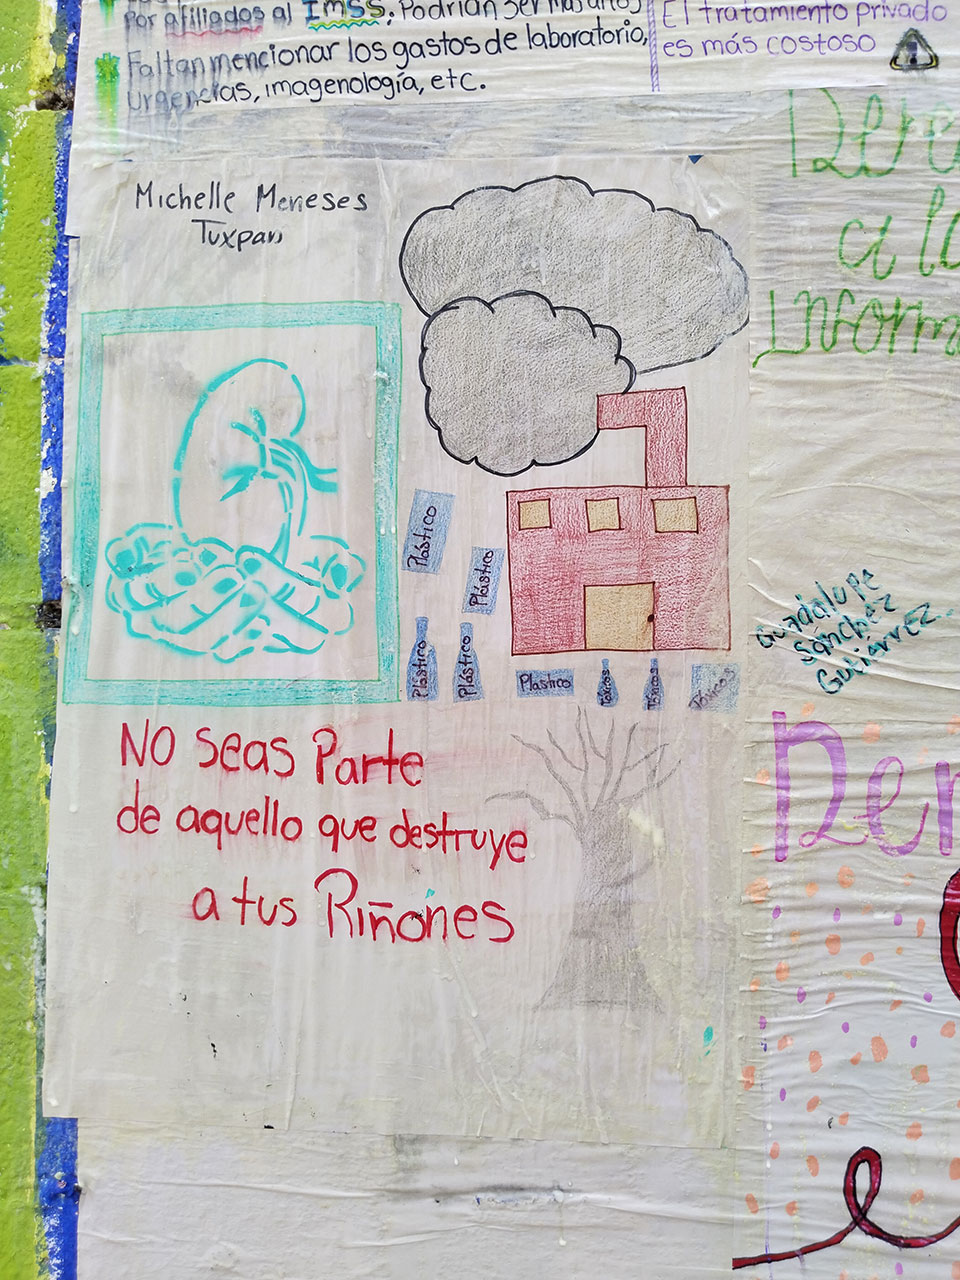 Por afiliados al IMSS. Podrían ser más años
Faltan mencionar los gastos de laboratorio,
urgencias, imagenología, etc.
El tratamiento privado
es más costoso
Michelle Meneses
Tuxpan
Dere
a la
Inform
Plástico
Plástico
Plástico
Plástico
Plastico
Tóxicos
Tóxicos
Tóxicos
Guadalupe
Sánchez
Gutiérrez
No seas Parte
de aquello que destruye
a tus Riñones
Der